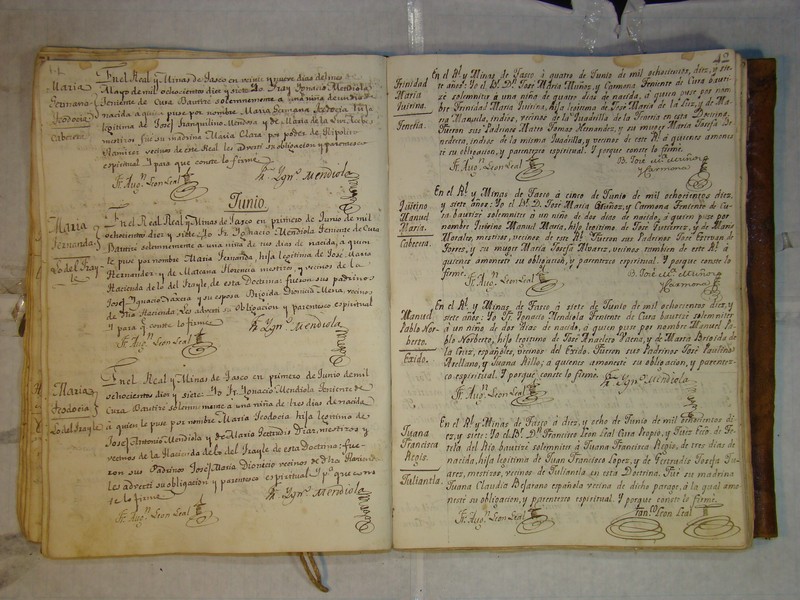 Maria
Germana
Teodocia
Cabecera
En el Real y Minas de Tasco en veinte y nueve dias del mes de
Mayo de mil ochocientos dies y siete. Yo Fray Ignacio Mendiola
Teniente de Cura Bautize solemnemente a una niña de un dia
nacida a quien puse por nombre Maria Germana Teodocia hija
legitima de José Tranquilino Mendoza y de Maria de la Luz
mestizos fue su madrina Maria Clara por poder de Hipolito
Ramirez vecinos de este Real les adverti su obligacion y parentesco
espiritual y para que conste lo firme
Fr. Ignº Mendiola
Fr. Augn Leon Leal
Junio.
Maria
Fernanda
Lo del Fray
le
En el Real y Minas de Tasco en primero de Junio de mil
ochocientos dies y siete. Yo Fr. Ignacio Mendiola Teniente de Cura
Bautize solemnemente a una niña de tres dias de nacida, a quien
le puse por nombre Maria Fernanda, hija legitima de José Mario
Hernandez y de Macana Florencia mestizos, y vecinos de la
Hacienda de lo del Frayle, de esta Doctrina fueron sus padrinos
José Ygnacio Garcia y su esposa Brigida Dionicia Mena, vecinos
de dha Hacienda les adverti su obligacion y parentesco espiritual
y para q. conste lo firme
Fr. Ignº Mendiola
Fr. Augn Leon Leal
Maria
Teodocia
Lo del Frayle
En el Real y Minas de Tasco en primero de Junio de mil
ochocientos dies y siete: Yo Fr. Ignacio Mendiola Teniente de
Cura Bautize solemnemente a una niña de tres dias de nacida
á quien le puse por nombre Maria Teodocia hija legitima de
José Antonio Mendiola y de Maria Gertrudis Diaz, mestizos y
vecinos de la Hacienda de lo del Frayle de esta Doctrina: fue-
ron sus Padrinos José Maria Dionicio vecinos de dha Hacienda
les adverti su obligacion y parentesco espiritual y pª que cons-
te lo firme
Fr. Ignº Mendiola
Fr. Augn Leon Leal
Trinidad
Maria
Quirina.
Tenería.
En el Rl. y Minas de Tasco á quatro de Junio de mil ochocientos, diez, y sie-
te años: Yo el B. Dn. José Maria Muñoz, y Carmona Teniente de Cura bauti-
zé solemnite á una niña de quatro dias de nacida, á quien puse por nom-
bre Trinidad Maria Quirina, hija legitima de José Maria de la Luz, y de Ma-
ria Manuela, indios, vecinos de la Quadrilla de la Tenería en esta Doctrina.
Fueron sus Padrinos Mateo Tomas Hernandez, y su muger Maria Josefa Be-
nedicta, indios de la misma Quadrilla, y vecinos de este Rl. á quienes amones-
té su obligacion, y parentezco espiritual. Y porque conste lo firmé.
B. José Ma. Muñoz
y Carmona
Fr. Augn Leon Leal
Quirino
Manuel
Maria.
Cabecera.
En el Rl. y Minas de Tasco á cinco de Junio de mil ochocientos diez,
y siete años: Yo el B. D. José Maria Muñoz, y Carmona Teniente de Cu-
ra bautizé solemnite á un niño de dos dias de nacido, á quien puse por
nombre Quirino Manuel Maria, hijo legitimo de José Gutierrez, y de Maria
Morales, mestizos, vecinos de este Rl. Fueron sus Padrinos José Estevan de
Flores, y su muger Maria Josefa Flores, vecinos tambien de este Rl. á
quienes amonesté su obligacion, y parentezco espiritual. Y porque conste lo
firmé.
B. José Ma. Muñoz
y Carmona
Fr. Augn Leon Leal
Manuel
Pablo Nor-
berto.
Exido.
En el Rl. y Minas de Tasco á siete de Junio de mil ochocientos diez, y
siete años: Yo Fr. Ignacio Mendiola Teniente de Cura bautizé solemnite
á un niño de dos dias de nacido, á quien puse por nombre Manuel Pa-
blo Norberto, hijo legitimo de José Anacleto Baena, y de Maria Brigida de
la Cruz, españoles, vecinos del Exido. Fueron sus Padrinos José Paulino
Arellano, y Juana Rillo; á quienes amonesté su obligacion, y parentez-
co espiritual. Y porque conste lo firmé.
Fr. Ygnº Mendiola
Fr. Augn Leon Leal
Juana
Francisca
Regis.
Tuliantla.
En el Rl. y Minas de Tasco á diez, y ocho de Junio de mil ochocientos di-
ez, y siete: Yo el B. Dn. Francisco Leon Leal Cura Propio, y Juez Eco. de Te-
tela del Rio bautizé solemnite á Juana Francisca Regis, de tres dias de
nacida, hija legitima de Juan Francisco Lopez, y de Gertrudis Josefa Jua-
res, mestizos, vecinos de Tuliantla en esta Doctrina. Fue su madrina
Juana Claudia Bejarano española vecina de dicho parage, á la qual amo-
nesté su obligacion, y parentezco espiritual. Y porque conste lo firmé.
Franco. Leon Leal
Fr. Augn Leon Leal